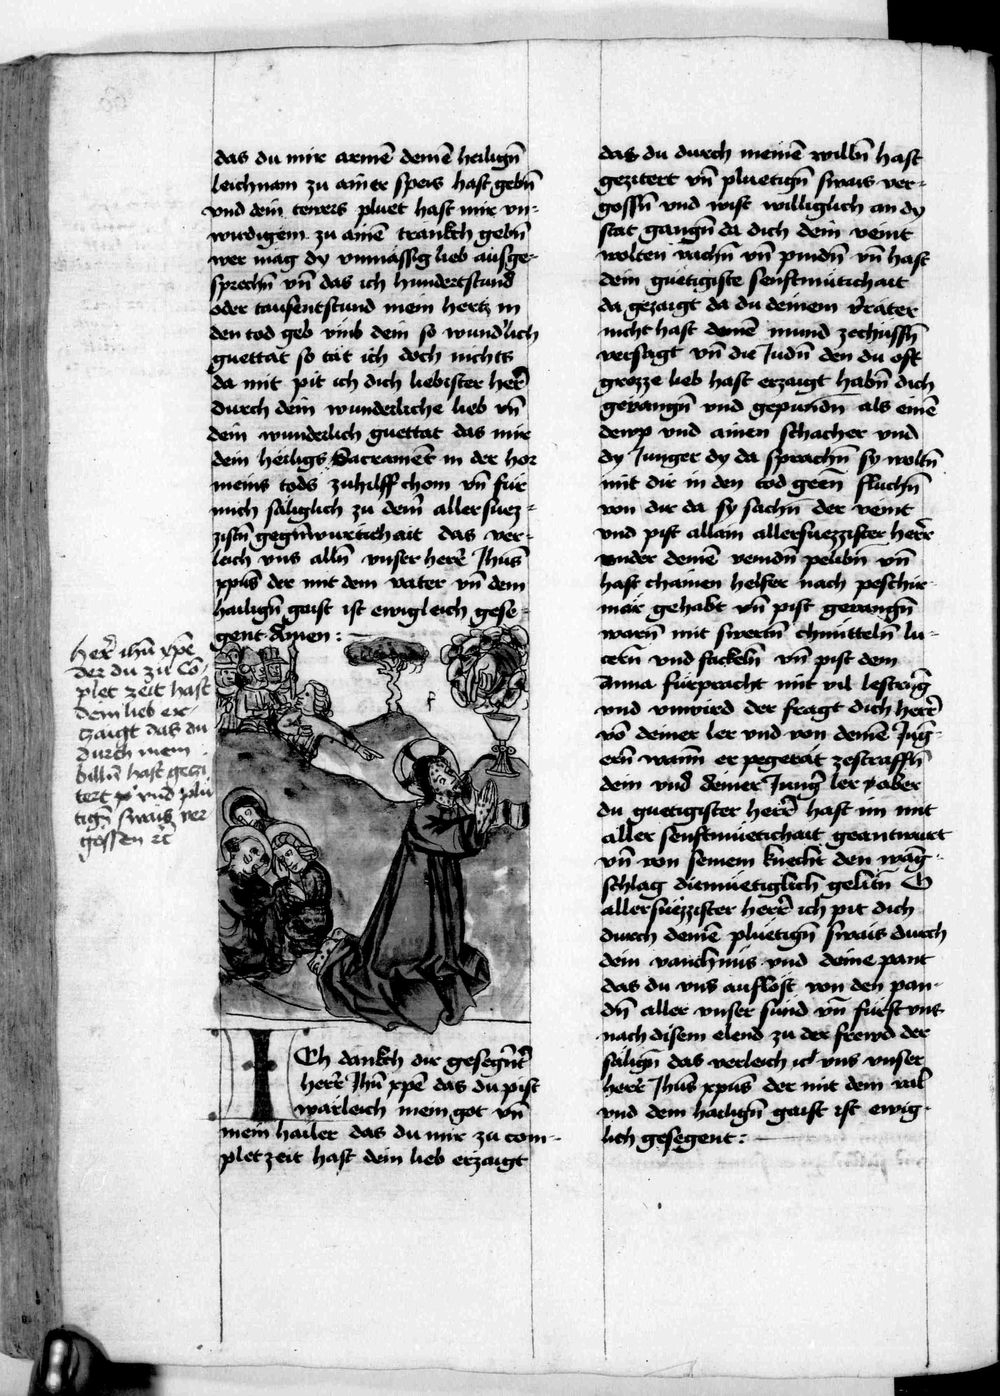 das du mir armē deinē heilign̄
leichnam zu ainer speis hast gebn̄
vnd dein tewrs pluet hast mir vn-
wirdigem zu ainē trankch gebn̄
wer mag dy vnmässig lieb ausge-
sprechn̄ vn̄ das ich hundertstund
oder tausentstund mein hertz in
den tod geb vmb dein so wund'lich
guettat so tät ich doch nichts
da mit pit ich dich liebister her̄
durch dein wunderliche lieb vn̄
dein wunderlich guettat das mir
dein heiligs Sacramēt in der hor
meins tods zuhilff chom vn̄ für
mich säliglich zu dein̄ allersuez-
zistn̄ gegn̄wurtichait das ver-
leich vns alln̄ vnser herr̄ Jhūs
xpūs der mit dem vater vn̄ dem
hailign̄ gaist ist ewigleich gese-
gent Amen :
her̄ ihū xpē
der du zu Cō-
plet zeit hast
dein lieb er-
tzaigt das du
durch mein
billn̄ hast gezi
tert vnd plu
tign̄ swais ver
gossen
ICh dankch dir gesegn̄t'
herr̄ Jhū xpē das du pist
warleich mein got vn̄
mein hailer das du mir zu com-
pletzeit hast dein lieb erzaigt
das du durch meinē willn̄ hast
gezitert vn̄ pluetign̄ swais ver-
gossn̄ vnd pist williglich an dy
stat gangn̄ da dich dein veint
wolten vachn̄ vn̄ pindn̄ vn̄ hast
dein guetigiste senftmütichait
da gezaigt da du deinem v'räter
nicht hast deinē mund zechüssn̄
versagt vn̄ die Judn̄ den du oft
grozze lieb hast erzaigt habn̄ dich
gevangn̄ vnd gepundn̄ als einē
dewp vnd ainen schacher vnd
dy Junger dy da sprachn̄ sy woltn̄
mit dir in den tod geen̄ fluchn̄
von dir da sy sachn̄ der veint
vnd pist allain allersuezzister herr̄
vnder deinē veindn̄ pelibn̄ vn̄
hast chainen helfer nach peschir-
mär gehabt vn̄ pist gevangn̄
warn̄ mit swertn̄ chnütteln̄ lu-
cern̄ vnd fackeln̄ vn̄ pist dem
Anna fürpracht mit vil lestrūg
vnd vnwird der fragt dich herr̄
vō deiner ler vnd von deinē Jūg-
ern̄ wann̄ er pegerät zestraffn̄
dein vnd deiner Jung' ler aber
du guetigister herr̄ hast im mit
aller senftmüetichait geantwurt
vn̄ von seinem knecht den wāg-
schlag diemüetiglich gelitn̄ O
allersuezzister herr̄ ich pit dich
durch deinē pluetign̄ swais durch
dein vanchnüs vnd deine pant
das du vns auflöst von den pan-
dn̄ aller vnser sünd vn̄ fürst vns
nach disem elend zu der frewd der
sälign̄ das verleich vns vnser
herr̄ Jhūs xpūs der mit dem vat'
vnd dem hailign̄ gaist ist ewig-
lich gesegent :